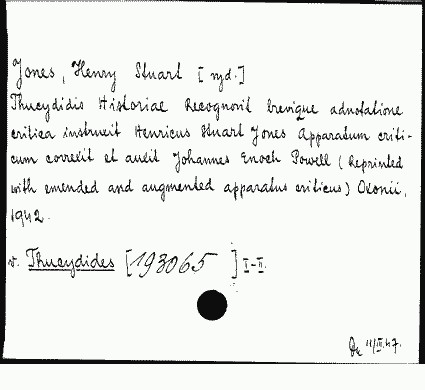 Jones, Henry Stuart [wyd.]
Thucydidis Historiae Recognovit brevique adnotatione
critica instruxit Henricus Stuart Jones Apparatum criti-
cum correxit et auxit Johannes Enoch Powell (Reprinted
with emended and augmented apparatus criticus) Oxonii,
1942.
v. Thucydides [193065] I-II.
11/III.47.